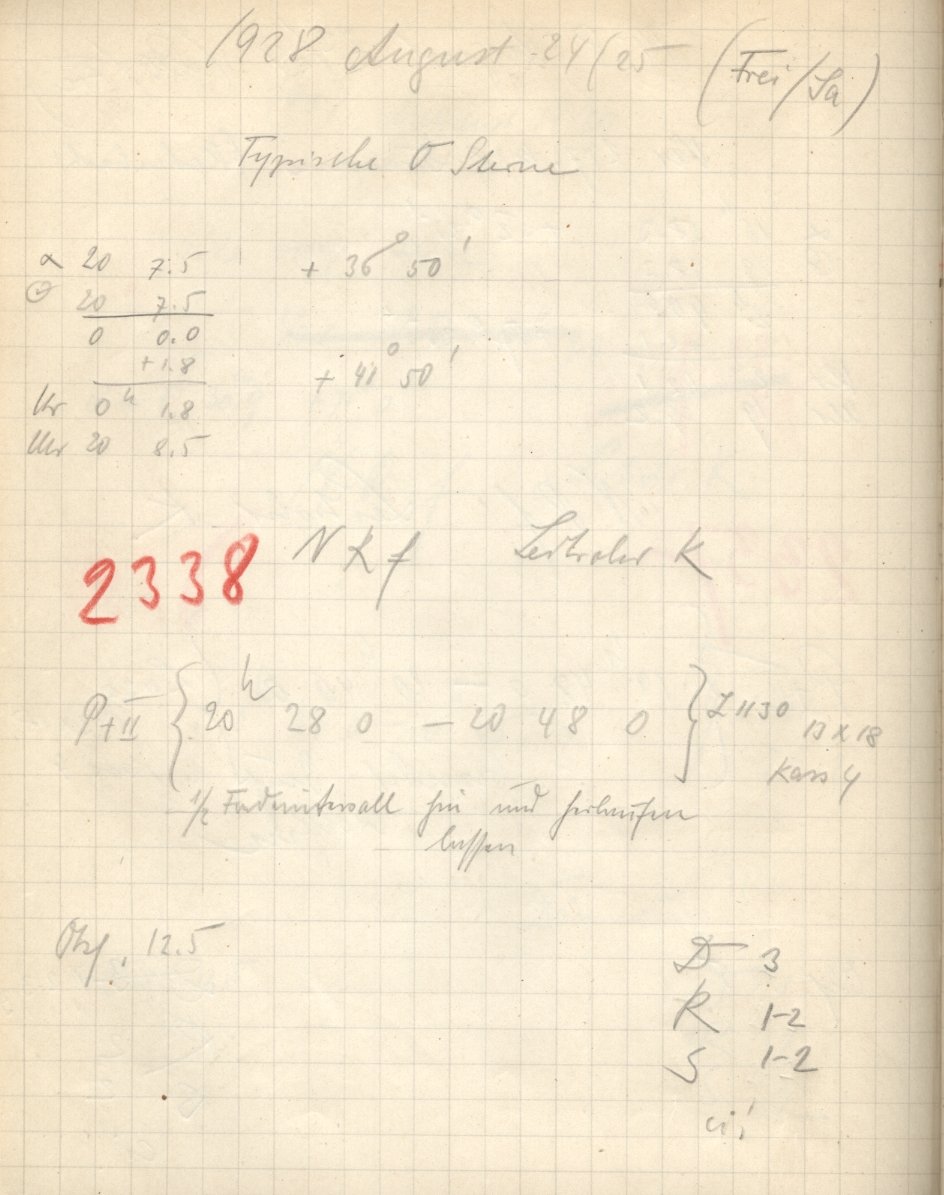 1928 August 24/25 (Frei/Sa)
Typische O Sterne
α 20 7.5 + 36° 50'
20 7.5
0 0.0
+1.8 + 41° 50'
0h 1.8
Uhr 20 8.5
2338 N K f Leitrohr K
P+II { 20h 28 0 — 20 48 0 } Z 1130
13 x 18
Kass 4
1/2 Fadenintervall hin und herlaufen
lassen
Okf. 12.5
D 3
R 1-2
S 1-2
ci!